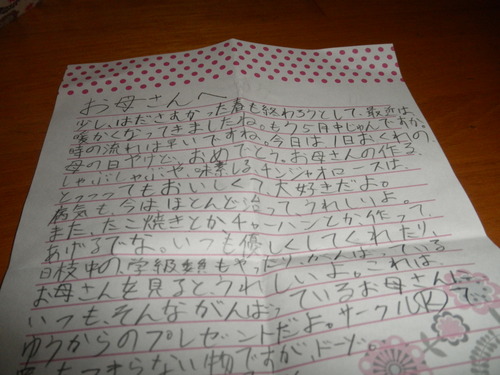 お母さんへ
少しはださむかった春も終わろうとして、最近は
暖かくなってきましたね。もう5月中じゅんですか。
時の流れは早いですね。今日は1日おくれの
母の日やけど、おめでとう。お母さんの作る、
しゃぶしゃぶや、味噌しる、チンジャオロースは、
とってってもおいしくて、大好きだよ。
病気も、今はほとんど治って、うれしいよ。
また、たこ焼きとか、チャーハンとか作って、
あげるでな。いつも優しくしてくれたり、
日枝中の、学級委員もやったり、がんばっている
お母さんを見ると、うれしいよ。これは、
いつも、そんながんばっているお母さんに、
ゆうからのプレゼントだよ。サークルKで
つまらない物ですが、ドーゾ。